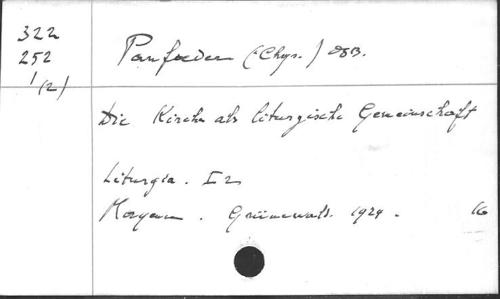 322
252
1(2)
Panfoeder (Chrys.) OSB.
Die Kirche als liturgische Gemeinschaft
Liturgia. I 2
Grünewald. 1924. 16